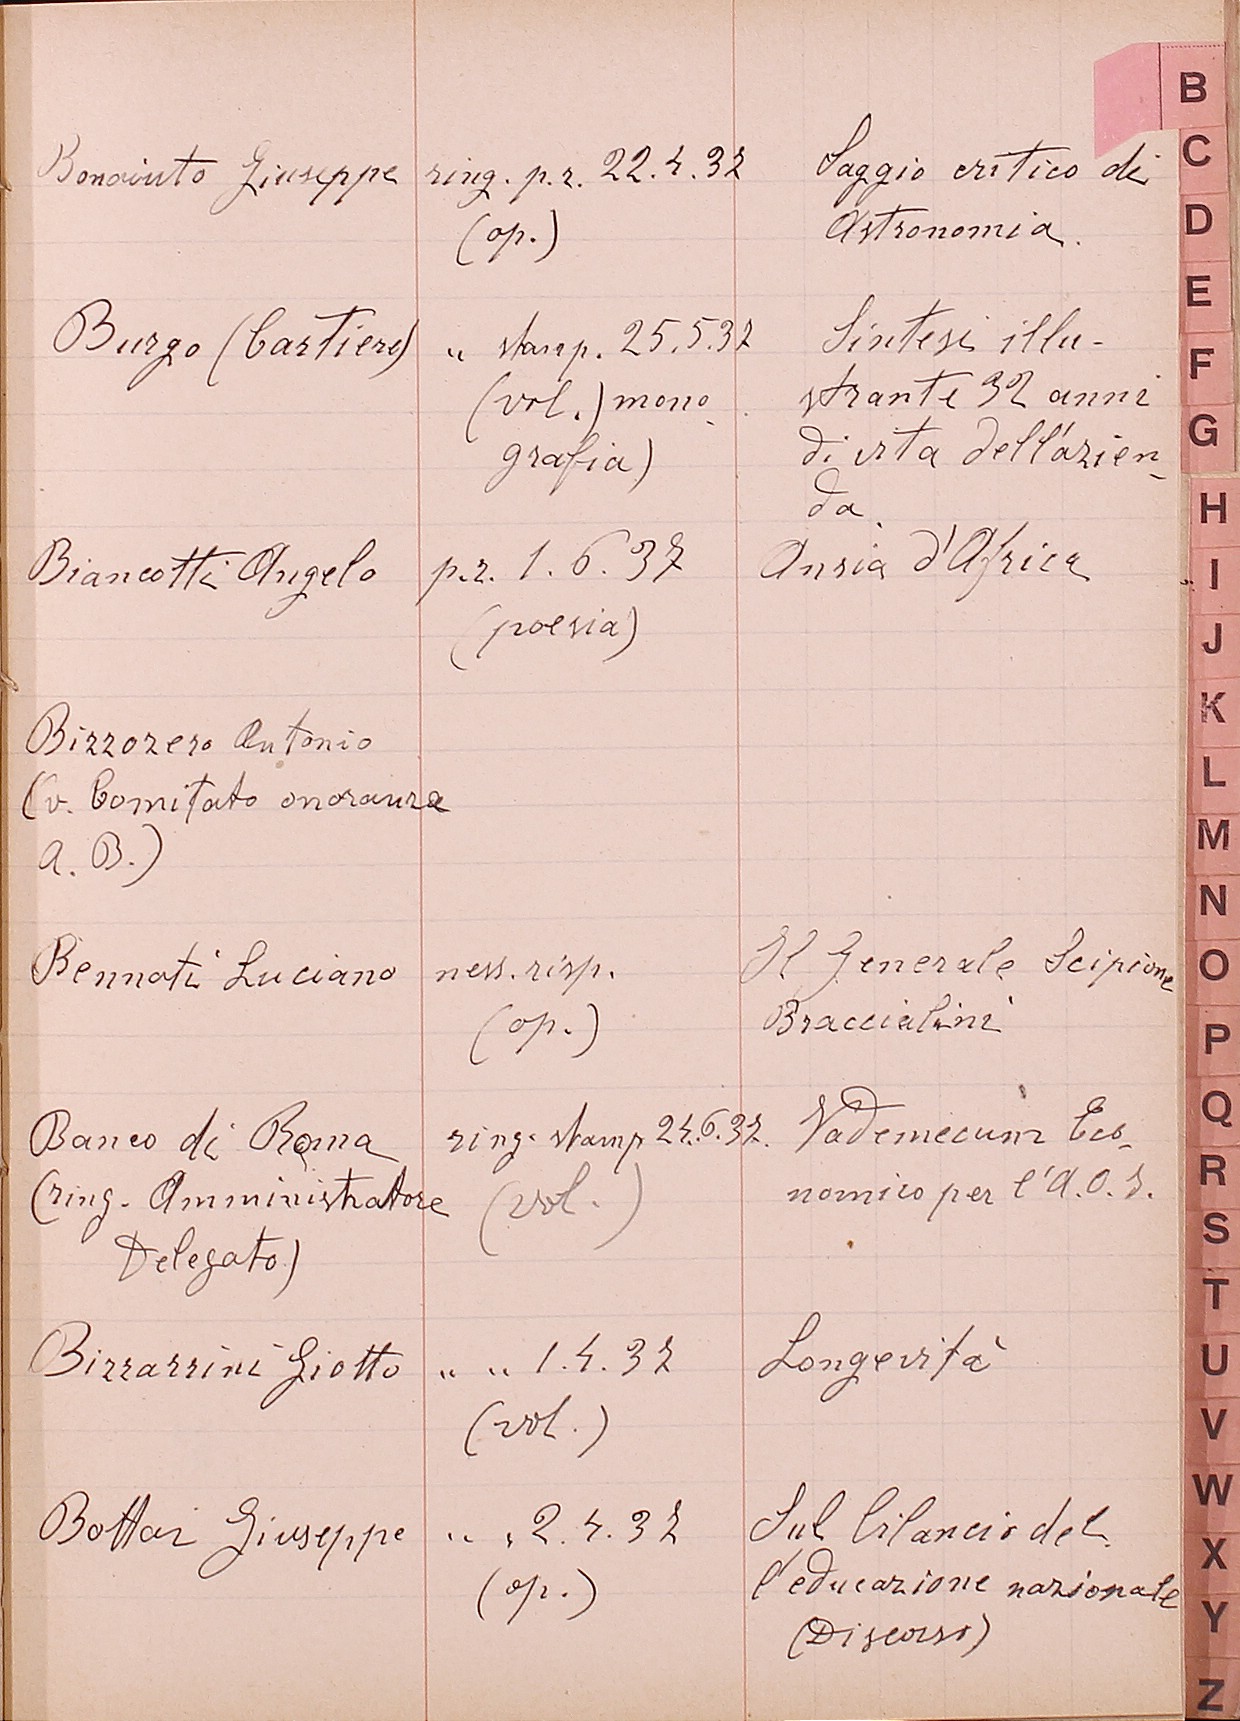 Bonaiuto Giuseppe ring. p.r. 22.4.37 Saggio critico di
(op.) Astronomia.
Burgo (Cartiere) " stamp. 25.5.37 Sintesi illu-
(vol.) mono- strante 32 anni
grafia) di vita dell'azien-
da.
Biancotti Angelo p.r. 1.6.37 Ansia d'Africa
(poesia)
Bizzozero Antonio
(v. Comitato onoranze
A. B.)
Bennati Luciano ness. risp. Il Generale Scipione
(op.) Braccialini
Banco di Roma ring. stamp 24.6.37. Vademecum Eco-
(ring. Amministratore (vol.) nomico per l'A.O.I.
Delegato)
Bizzarrini Giotto " " 1.4.37 Longevità
(vol.)
Bottai Giuseppe " " 2.4.37 Sul bilancio del-
(op.) l'educazione nazionale
(Discorso)
B
C
D
E
F
G
H
I
J
K
L
M
N
O
P
Q
R
S
T
U
V
W
X
Y
Z